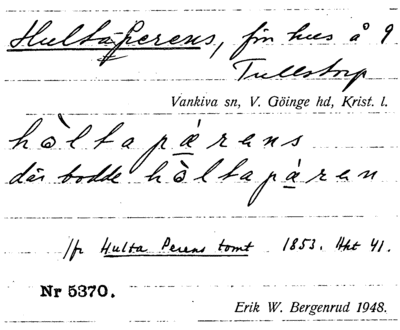 Hulta Perens, fin hus å 9
Tullstorp
Vankiva sn, V. Göinge hd, Krist. l.
hòltapárens
där bodde hòltapáren
Jfr Hulta Perens tomt 1853. Akt 41.
Nr 5370.
Erik W. Bergenrud 1948.